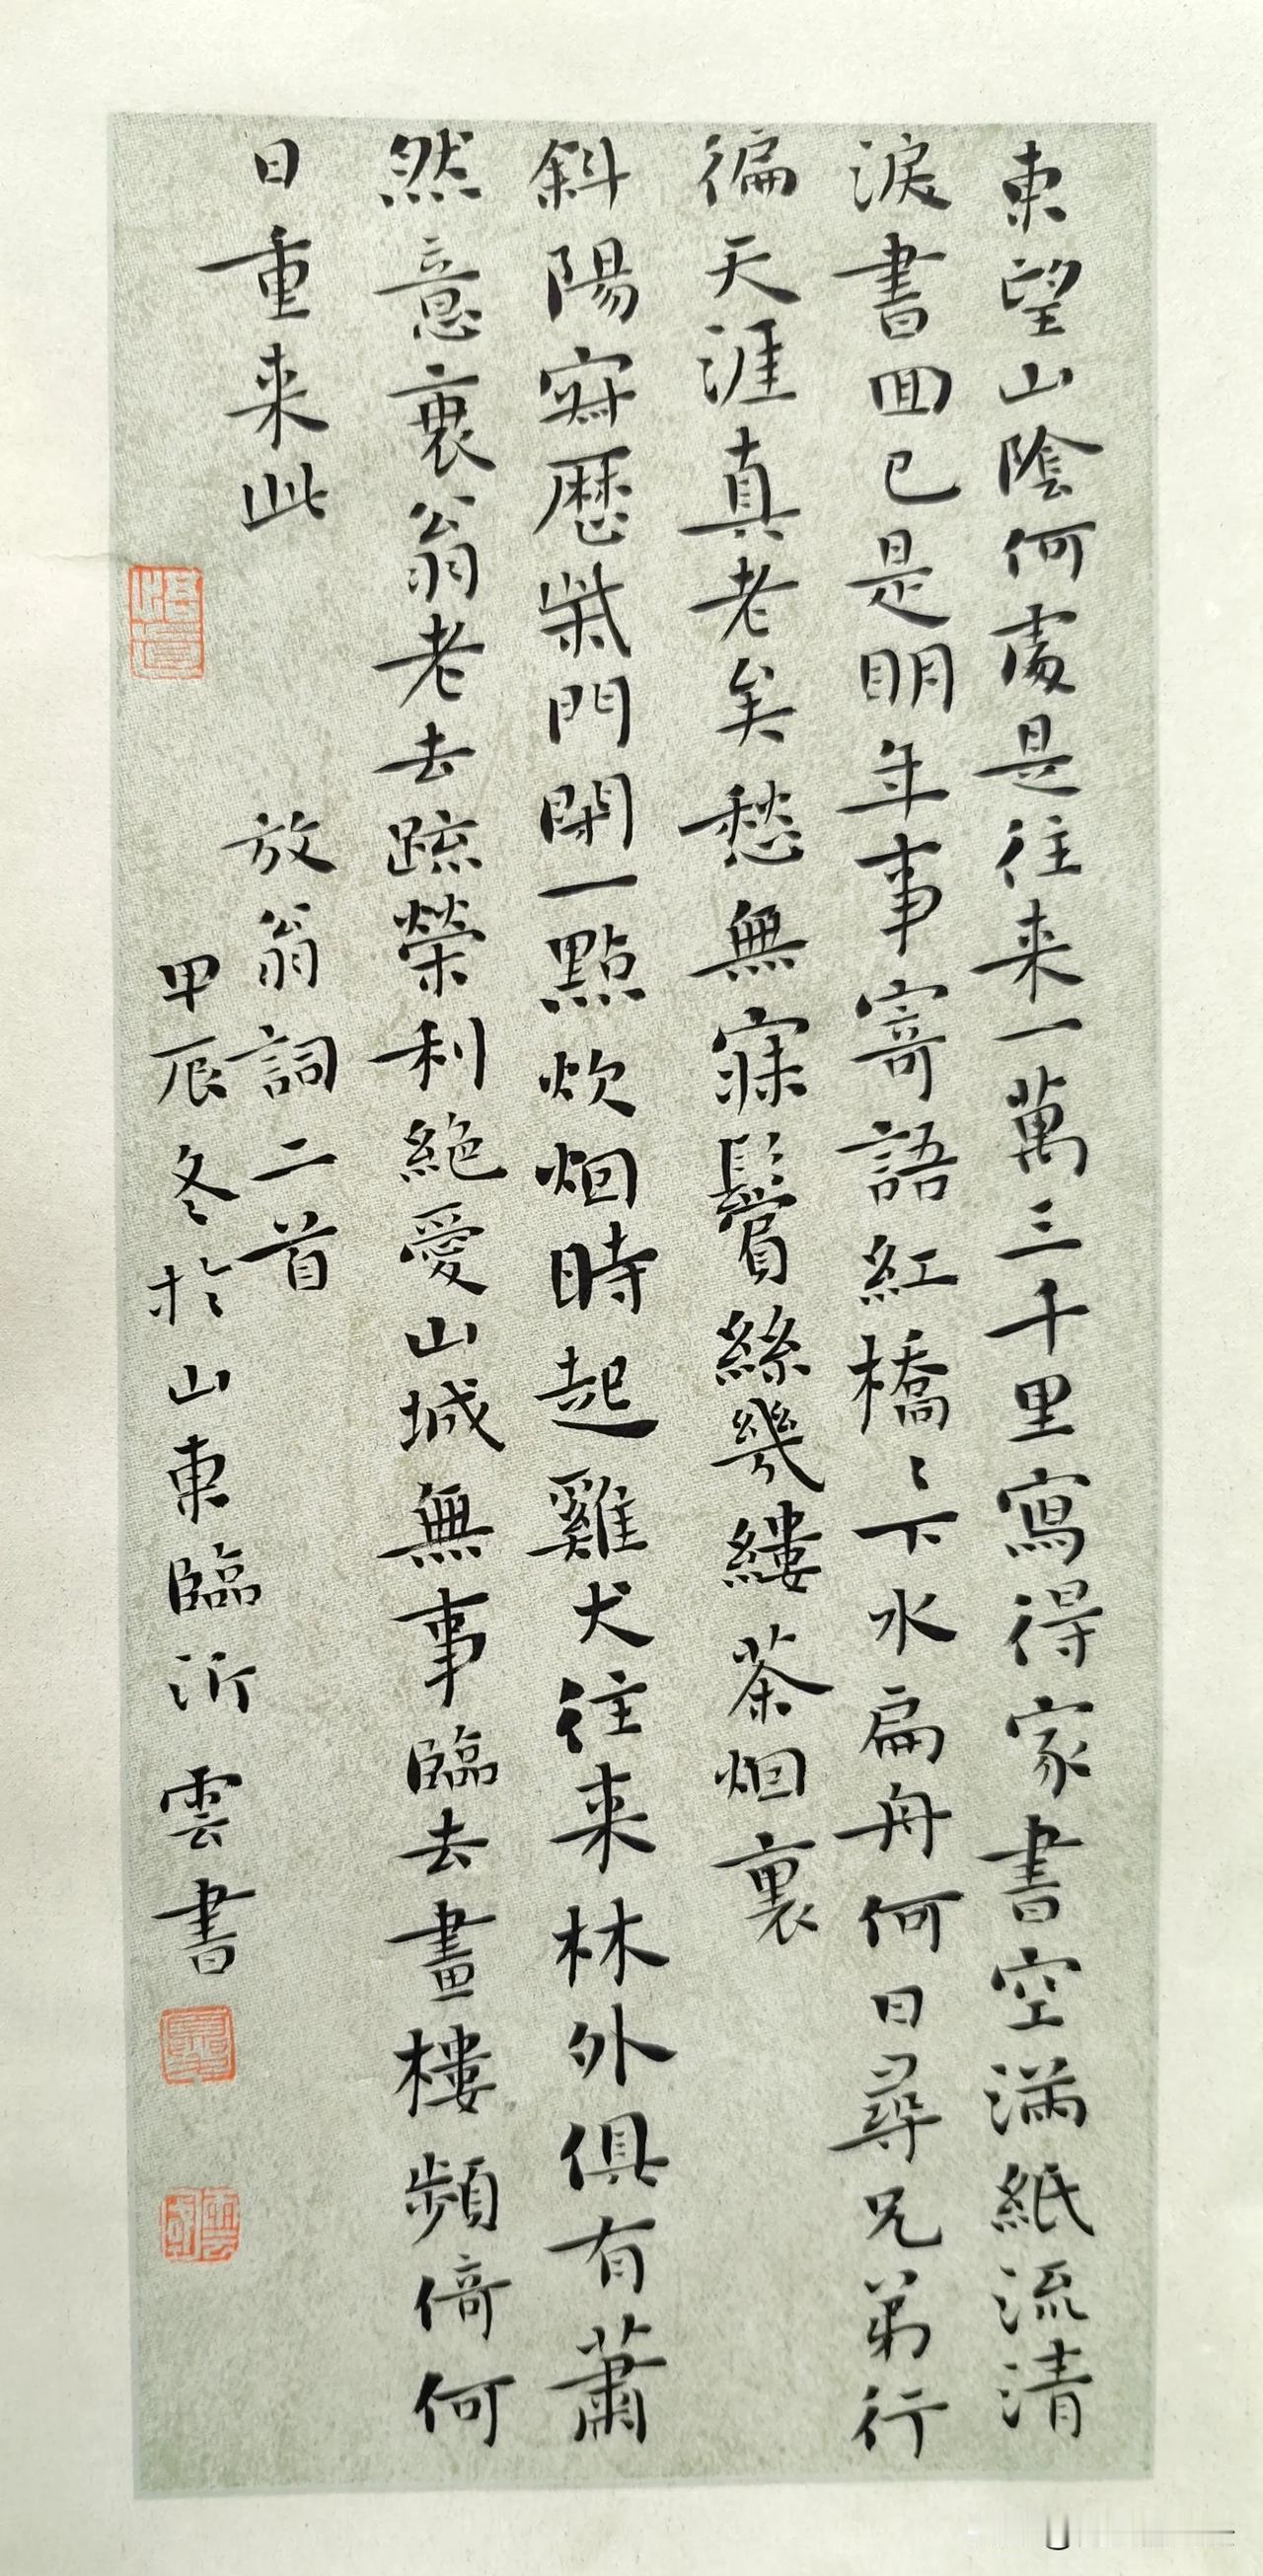 東望山陰何處是往来一萬三千里寫得家書空滿紙流清
淚書回已是明年事寄語紅橋〻下水扁舟何日尋兄弟行
徧天涯真老矣愁無寐鬢絲幾縷茶烟裏
斜陽寂歷柴門閉一點炊烟時起雞犬往来林外俱有蕭
然意衰翁老去疏榮利絶愛山城無事臨去畫樓頻倚何
日重来此
放翁詞二首
甲辰冬於山東臨沂雲書